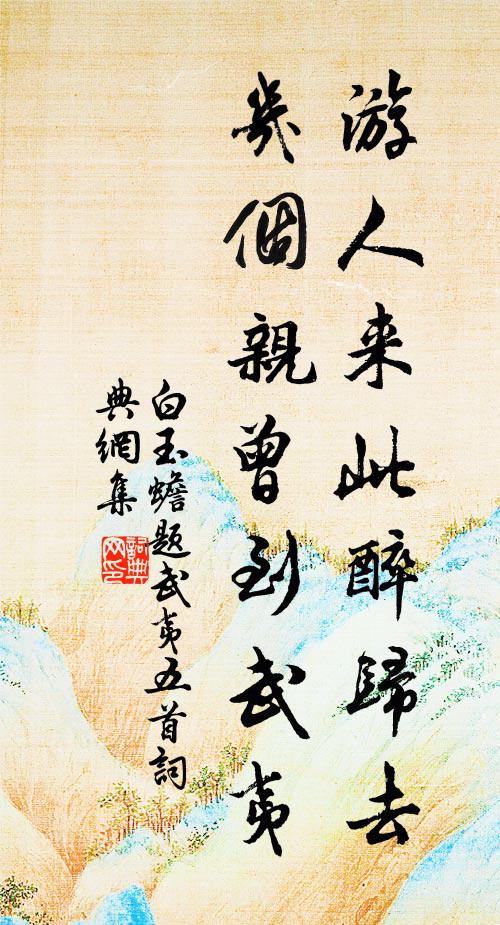 游人来此醉歸去
幾個親曾到武夷
白玉蟾題武夷五首詞
典網集
詞典
网印